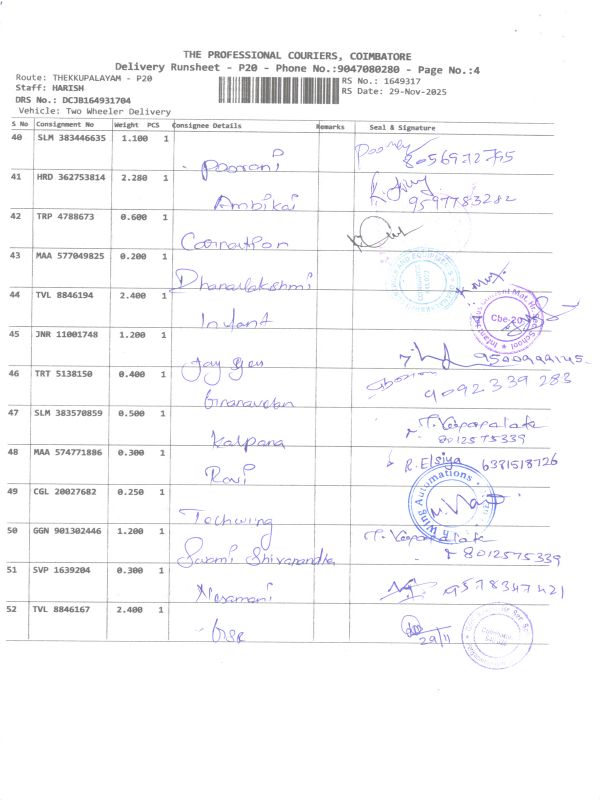 THE PROFESSIONAL COURIERS, COIMBATORE
Delivery Runsheet - P20 - Phone No.:9047080280 - Page No.:4
Route: THEKKUPALAYAM - P20
RS No.: 1649317
Staff: HARISH
RS Date: 29-Nov-2025
DRS No.: DCJB164931704
Vehicle: Two Wheeler Delivery
S No Consignment No Weight PCS Consignee Details Remarks Seal & Signature
40 SLM 383446635 1.100 1 Poorani
41 HRD 362753814 2.280 1 Ambikai 9597783282
42 TRP 4788673 0.600 1
43 MAA 577049825 0.200 1 Dhanalakshmi
44 TVL 8846194 2.400 1 Infant Cbe-20
45 JNR 11001748 1.200 1 9500999145
46 TRT 5138150 0.400 1 9092339283
47 SLM 383570859 0.500 1 Kalpana 8012575339
48 MAA 574771886 0.300 1 Ravi R. Elsiya 6381518726
49 CGL 20027682 0.250 1 Techwing Wing Automations
50 GGN 901302446 1.200 1 Swami 8012575339
51 SVP 1639204 0.300 1 Nesamani 9578347421
52 TVL 8846167 2.400 1 29/11